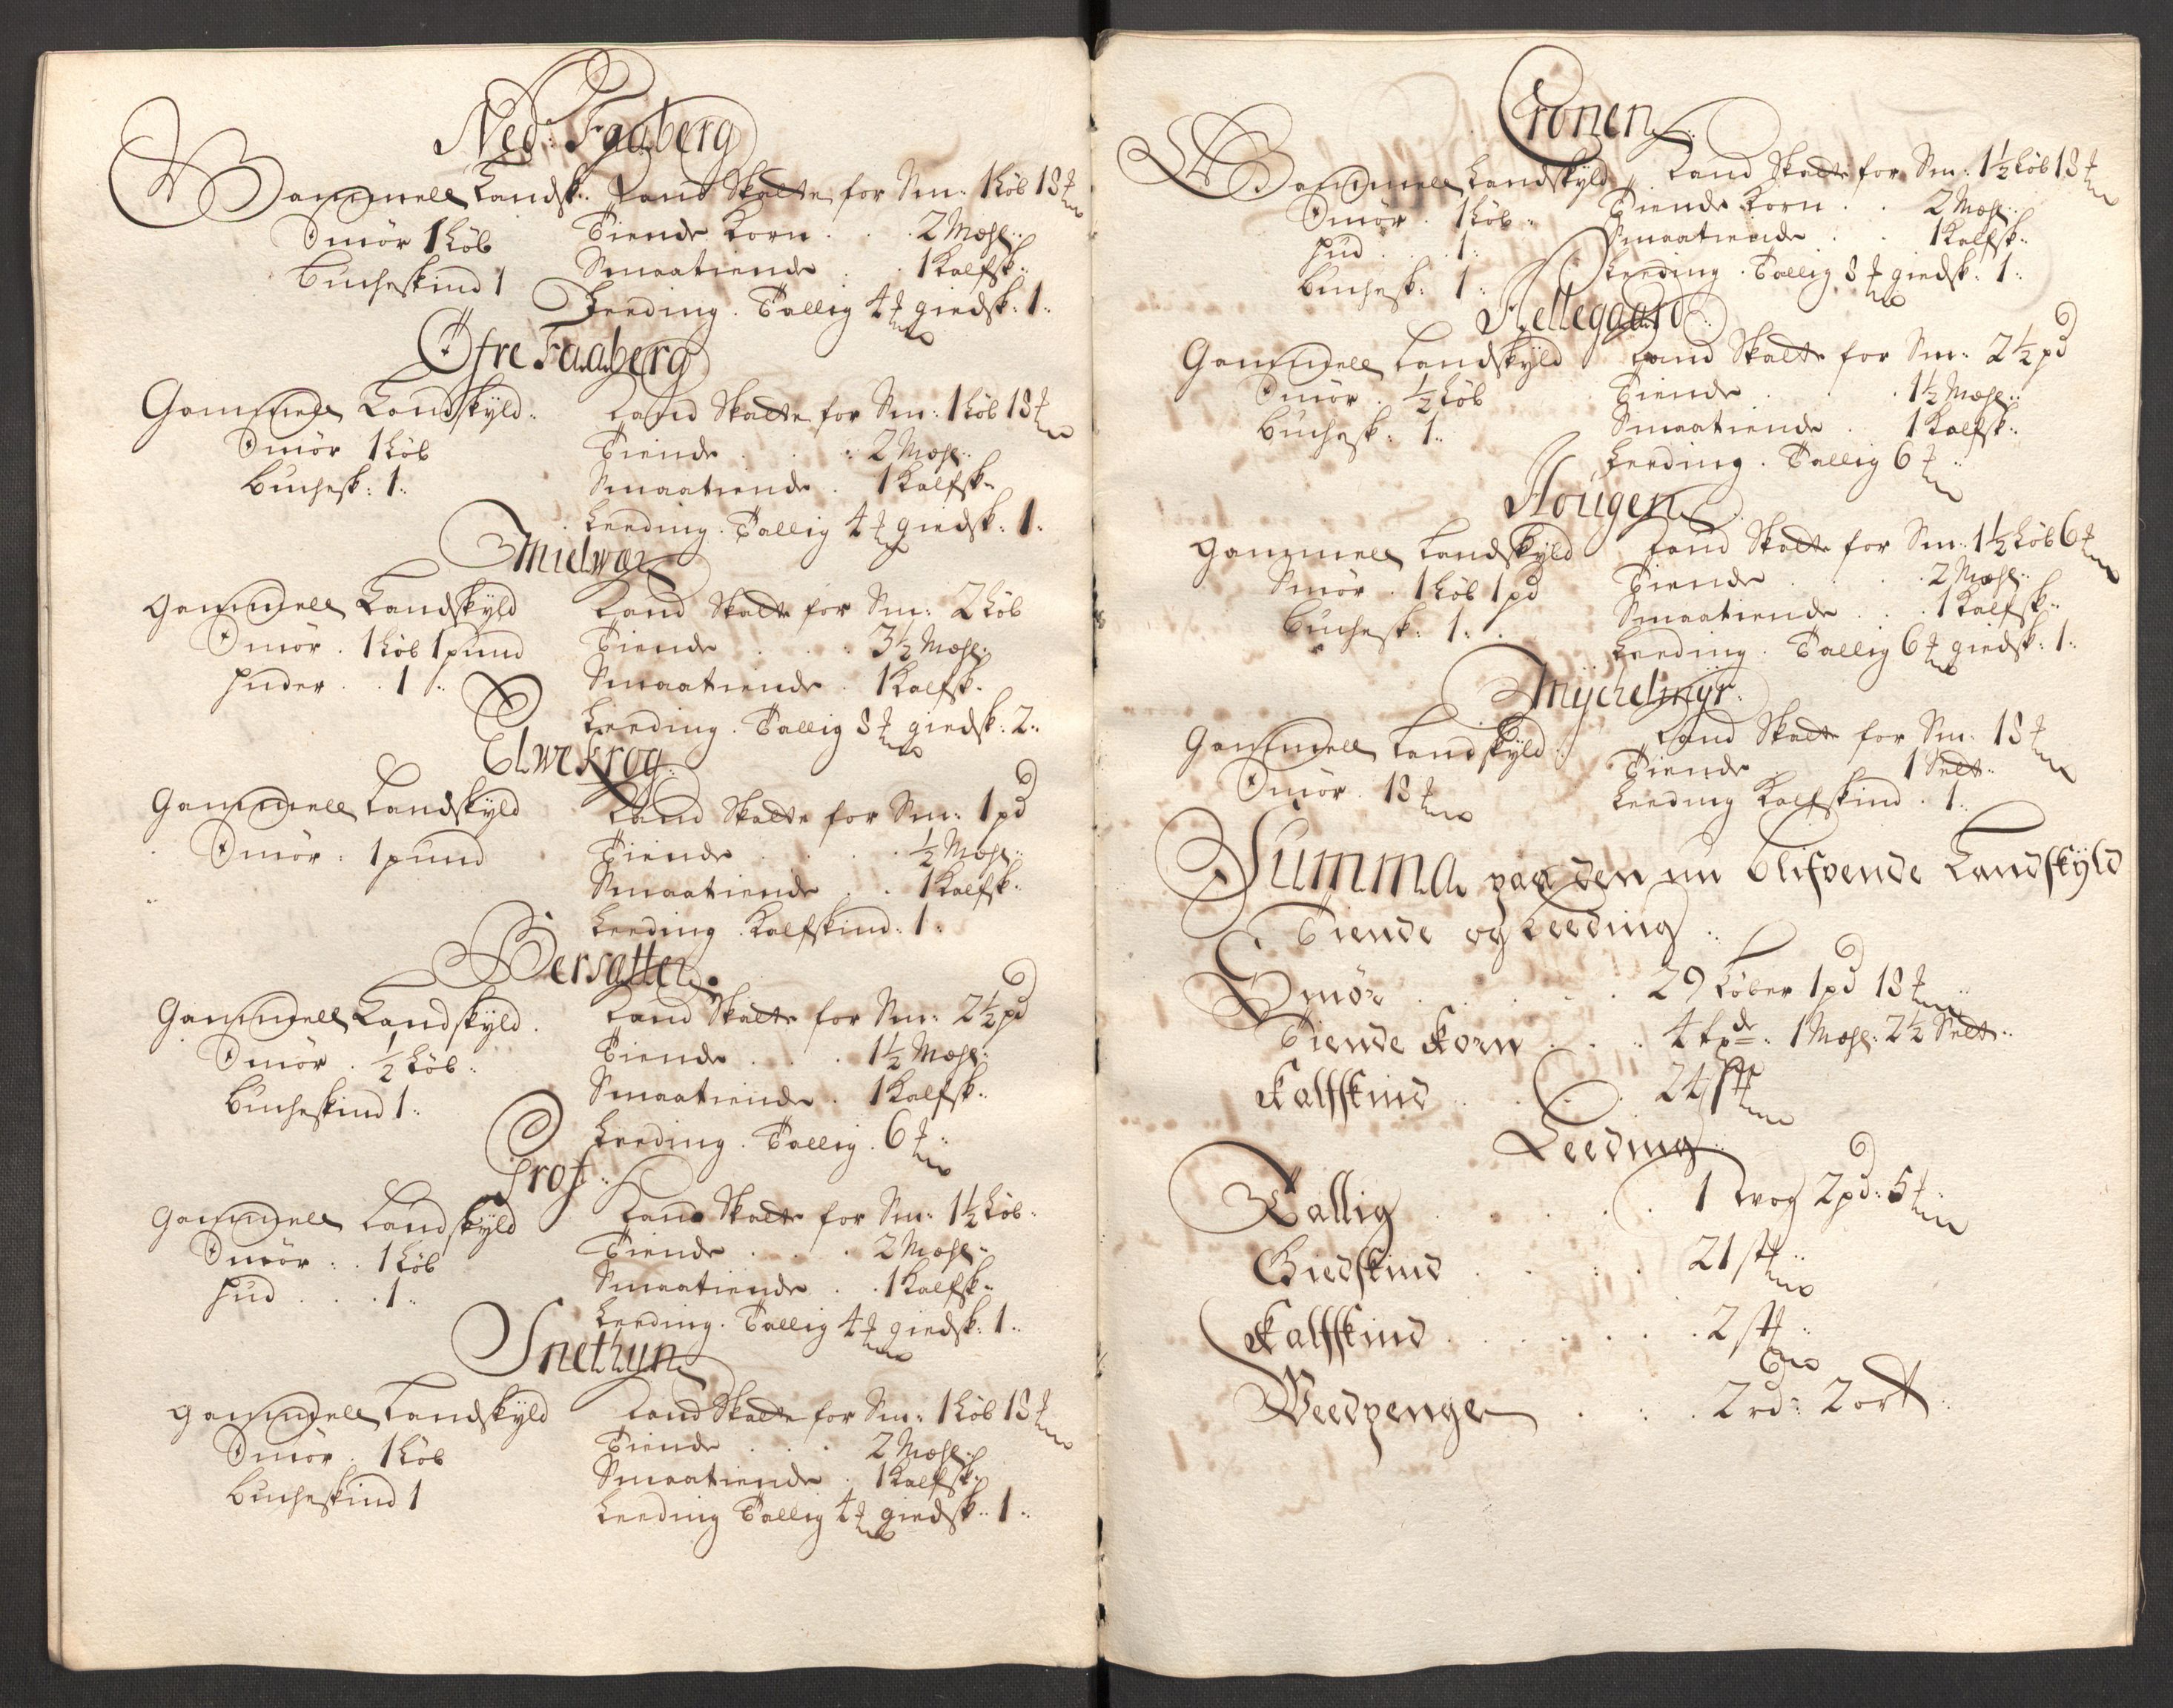 Ned: Faaberg
Gammell Landsk: Land Skatte for Sm: 1 Løb 18 ℔
Smör 1 Løb Tiende Korn . . . 2 Mæhl:
Bucheskind 1 Smaatiende . . 1 Kalfsk:
Leeding . Tallig 4 ℔ giedsk: 1:
Öfre Faaberg
Gammell Landskyld: Land Skatte for Sm: 1 Løb 18 ℔
Smör 1 Løb Tiende . . : 2 Mæhl:
Buchesk: 1: Smaatiende . 1 Kalfsk:
Leeding . Tallig 4 ℔ giedsk: 1:
Mielwær
Gammell Landskyld Land Skatte for Sm: 2 Løb
Smör . 1 Løb 1 pund Tiende . . . 3½ Mæhl:
Huder . . 1 : Smaatiende . 1 Kalfsk:
Leeding . Tallig 8 ℔ giedsk: 2:
Elwekrog
Gammell Landskyld Land Skatte for Sm: 1 pd
Smör : 1 pund Tiende . . . . ½ Mæhl:
Smaatiende . . 1 Kalfsk:
Leeding Kalfskind: 1:
Bersætter
Gammell Landskyld . Land Skatte for Sm: 2½ pd
Smör . ½ Løb: Tiende . . . 1½ Mæhl:
Bucheskind 1: Smaatiende . 1 Kalfsk:
Leeding . Tallig . 6 ℔:
Grof
Gammell Landskyld Land Skatte for Sm: 1½ Løb:
Smör : . 1 Løb Tiende . . . 2 Mæhl:
Hud . . . 1: Smaatiende . . 1 Kalfsk:
Leeding . Tallig 4 ℔ giedsk: 1:
Snethun
Gammell Landskyld Land Skatte for Sm: 1 Løb 18 ℔
Smör . 1 Løb Tiende . . . 2 Mæhl:
Bucheskind 1 Smaatiende . 1 Kalfsk:
Leeding Tallig 4 ℔ giedsk: 1:
Cronen
Gammell Landskyld Land Skatte for Sm: 1½ Løb 18 ℔
Smör . 1 Løb: Tiende Korn . . 2 Mæhl:
Hud . . . 1: Smaatiende . . 1 Kalfsk:
Buchesk: 1: Leeding . Tallig 8 ℔ giedsk: 1:
Hellegaard
Gammell Landskyld Land Skatte for Sm: 2½ pd
Smör . ½ Løb Tiende . . . 1½ Mæhl:
Buchesk: 1: Smaatiende . 1 Kalfsk:
Leeding . Tallig 6 ℔:
Hougen
Gammell Landskyld Land Skatte for Sm: 1½ Løb 6 ℔
Smör . 1 Løb 1 pd Tiende . . . . 2 Mæhl:
Buchesk: 1: Smaatiende . . 1 Kalfsk:
Leeding . Tallig 6 ℔ giedsk: 1:
Mychelmyr
Gammell Landskyld: Land Skatte for Sm: 18 ℔
Smör . 18 ℔ Tiende 1 Selt:
Leeding Kalfskind . 1:
Summa paa den nu blifvende Landskyld
Tiende og Leeding:
Smör . . . . . . 29 Løber 1 pd 18 ℔:
Tiende Korn . . . 4 tpde: 1 Mæhl: 2½ Selt:
Kalfskind . . . . 24 st
Leeding
Tallig . . . . . . 1 wog 2 pd: 5 ℔
Giedskind . . . . 21 st:
Kalfskind . . . . . . . 2 st:
Weedpenge . . . . 2 rd: 2 ort: